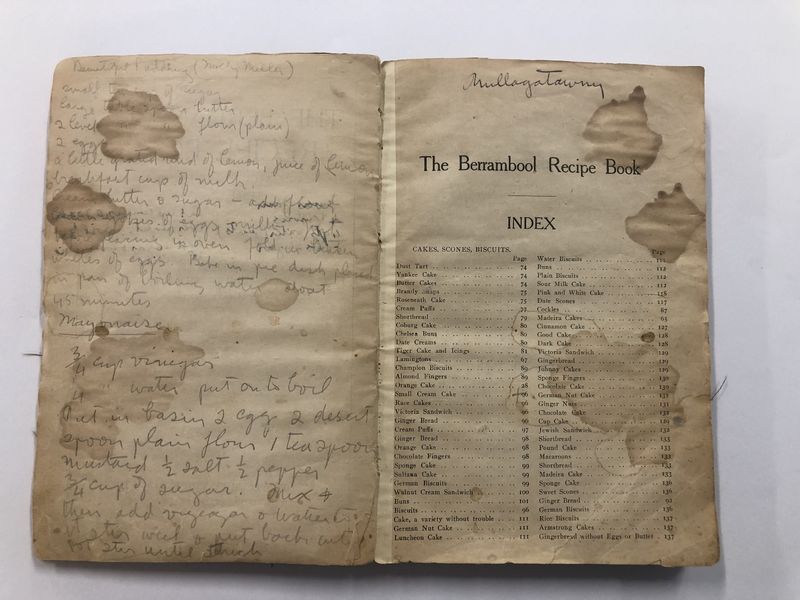 Beautiful Pudding (Molly Mellor)
small of sugar
large table spoon butter
2 level " " flour (plain)
2 eggs
a little grated rind of lemon, juice of lemon
breakfast cup of milk.
butter & sugar
of eggs milk
to oven fold in
whites of eggs. Bake in pie dish placed
in pan of boiling water about
45 minutes
Mayonaise
3/4 cup vinegar
1/4 " water put on to boil
Put in basin 2 egg 2 desert
spoon plain flour 1 teaspoon
mustard 1/2 salt 1/2 pepper
3/4 cup of sugar. Mix &
then add vinegar & water to
stir well & put back
stir until thick
Mullagatawny
The Berrambool Recipe Book
INDEX
CAKES, SCONES, BISCUITS.
Page
Dust Tart 74
Yankee Cake 74
Butter Cakes 74
Brandy Snaps 75
Roseneath Cake 75
Cream Puffs 77
Shortbread 79
Coburg Cake 80
Chelsea Buns 80
Date Creams 80
Tiger Cake and Icings 81
Lamingtons 67
Champion Biscuits 89
Almond Fingers 89
Orange Cake 28
Small Cream Cake 96
Race Cakes 96
Victoria Sandwich 96
Ginger Bread 96
Cream Puffs 97
Ginger Bread 98
Orange Cake 98
Chocolate Fingers 98
Sponge Cake
Sultana Cake
German Biscuits
Walnut Cream Sandwich 100
Buns 101
Biscuits 96
Cake, a variety without trouble 111
German Nut Cake 111
Luncheon Cake 111
Page
Water Biscuits
Buns 112
Plain Biscuits 112
Sour Milk Cake 112
Pink and White Cake 118
Date Scones 117
Cockles 87
Madeira Cakes 65
Cinnamon Cake 127
Good Cake 128
Dark Cake 128
Victoria Sandwich 129
Gingerbread 129
Johnny Cakes 129
Sponge Fingers 130
Chocolate Cake 130
German Nut Cake 131
Ginger Nuts 131
Chocolate Cake 132
Cup Cake
Jewish Sandwich 132
Shortbread 133
Pound Cake 133
Macaroons 133
Shortbread 133
Madeira Cake 133
Sponge Cake 136
Sweet Scones 136
Ginger Bread 92
German Biscuits 136
Rice Biscuits 137
Armstrong Cakes 137
Gingerbread without Eggs or Butter 137